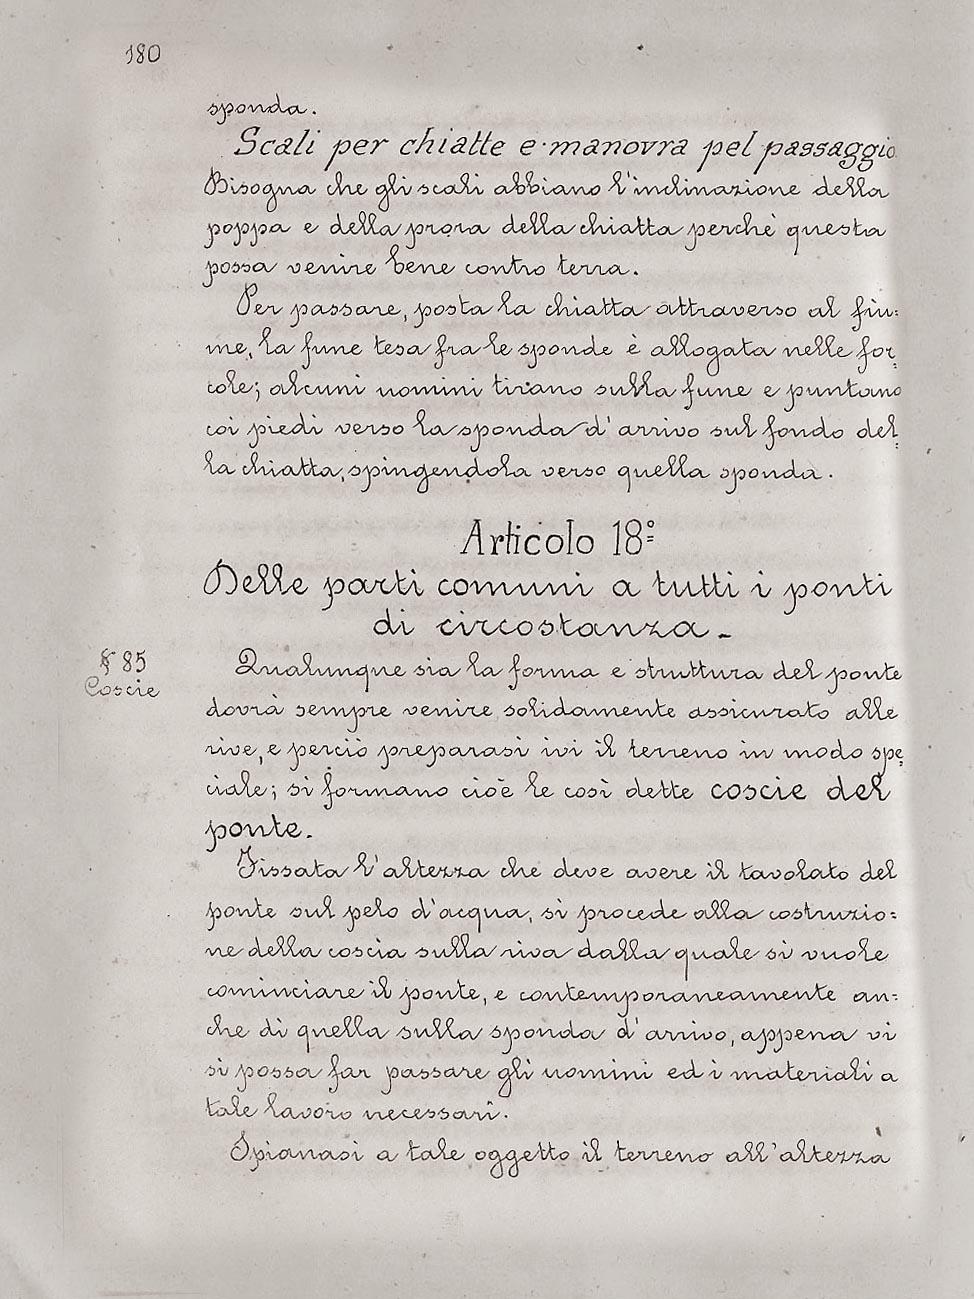 180
sponda.
Scali per chiatte e manovra pel passaggio
Bisogna che gli scali abbiano l'inclinazione della
poppa e della prora della chiatta perchè questa
possa venire bene contro terra.
Per passare, posta la chiatta attraverso al fiu=
me, la fune tesa fra le sponde è allogata nelle for=
cole; alcuni uomini tirano sulla fune e puntano
coi piedi verso la sponda d'arrivo sul fondo del=
la chiatta, spingendola verso quella sponda.
Articolo 18º
Delle parti comuni a tutti i ponti
di circostanza.-
§ 85
Coscie
Qualunque sia la forma e struttura del ponte
dovrà sempre venire solidamente assicurato alle
rive, e perciò preparasi ivi il terreno in modo spe=
ciale; si formano cioè le così dette coscie del
ponte.
Fissata l'altezza che deve avere il tavolato del
ponte sul pelo d'acqua, si procede alla costruzio=
ne della coscia sulla riva dalla quale si vuole
cominciare il ponte, e contemporaneamente an=
che di quella sulla sponda d'arrivo, appena vi
si possa far passare gli uomini ed i materiali a
tale lavoro necessarî.
Spianasi a tale oggetto il terreno all'altezza